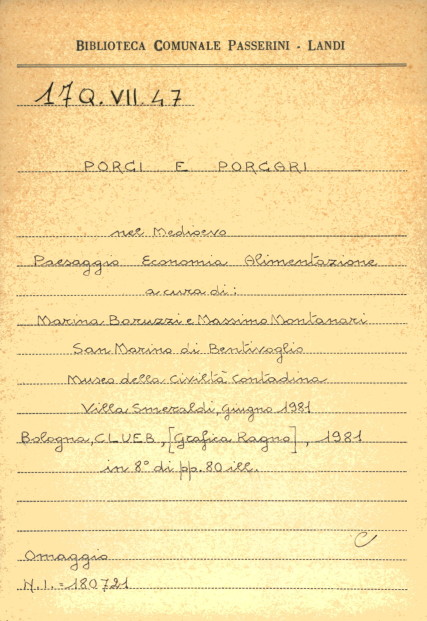 BIBLIOTECA COMUNALE PASSERINI - LANDI
17Q. VII. 47
PORCI E PORCARI
nel Medioevo
Paesaggio Economia Alimentazione
a cura di:
Marina Baruzzi e Massimo Montanari
San Marino di Bentivoglio
Museo della Civiltà Contadina
Villa Smeraldi, giugno 1981
Bologna, CLUEB, [Grafica Ragno], 1981
in 8° di pp. 80 ill.
C
Omaggio
N.I. = 180721